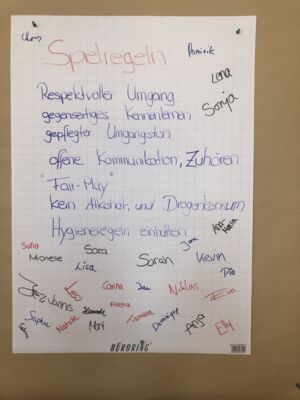 Chris
Dominik
Spielregeln
Lena
Sonja
Respektvoller Umgang
gegenseitiges Kennenlernen
gepflegter Umgangston
offene Kommunikation, Zuhören
"Fair-Play"
kein Alkohol, und Drogenkonsum
Hygieneregeln einhalten
Anna-Maria
Sofia
Sara
Jana
Michelle
Sarah
Kevin
Lisa
Pia
Jannis
Leo
Carina
Jan
Niklas
Eva
Hannah
Alena
Sophie
Natalie
Mary
Tamara
Dominique
Anja
Elly
BÜRORING